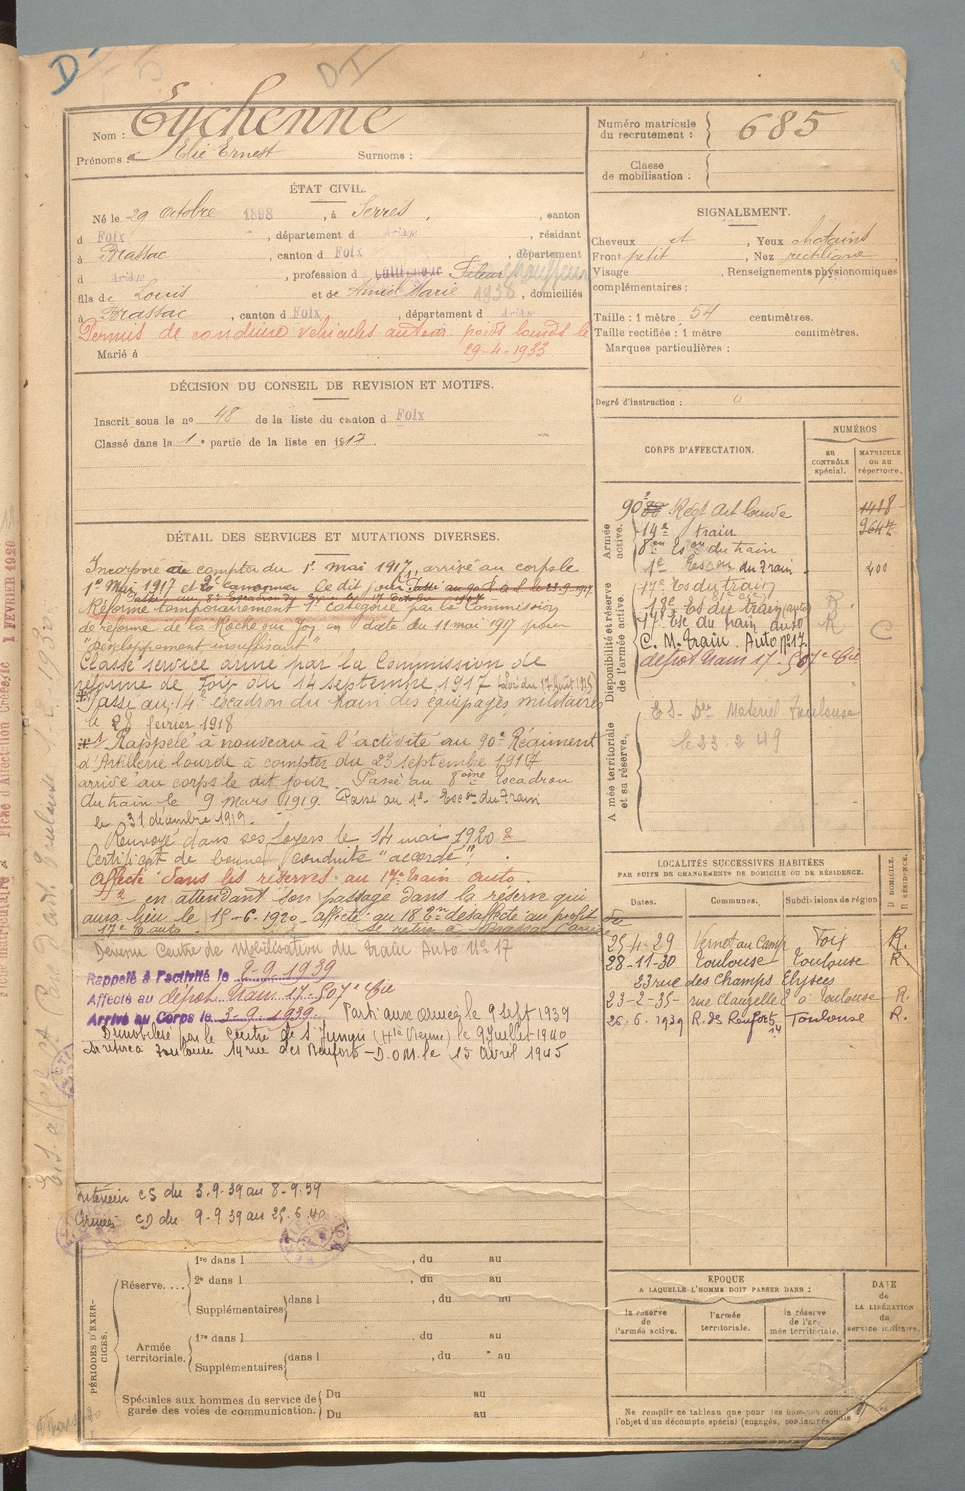 D
DI
Nom : Eychenne
Prénoms : Elie Ernest Surnoms :
Numéro matricule du recrutement : 685
Classe de mobilisation :
ÉTAT CIVIL.
Né le 29 Octobre 1898, à Serres, canton
d Foix, département d Ariège, résidant
à Brassac, canton d Foix, département
d Ariège, profession d Fileur chauffeur
fils de Louis et de Marie 1938, domiciliés
à Brassac, canton d Foix, département d Ariège
Permis de conduire véhicules poids lourds le
29-4-1933
Marié à
SIGNALEMENT.
Cheveux et, Yeux chatains
Front petit, Nez rectiligne
Visage, Renseignements physionomiques
complémentaires :
Taille : 1 mètre 54 centimètres.
Taille rectifiée : 1 mètre centimètres.
Marques particulières :
Degré d'instruction : 0
DÉCISION DU CONSEIL DE REVISION ET MOTIFS.
Inscrit sous le no 48 de la liste du canton d Foix
Classé dans la 1e partie de la liste en 1917.
DÉTAIL DES SERVICES ET MUTATIONS DIVERSES.
Incorporé à compter du 1er mai 1917, arrivé au corps le
1er Mai 1917 et 2e canonnier Ce dit jour Passé au
Réformé temporairement 1e catégorie par la Commission
de réforme de la Roche sur Yon en date du 11 mai 1917 pour
"Développement insuffisant"
Classé service armé par la Commission de
réforme de Foix du 14 septembre 1917
Passé au 14e escadron du train des équipages militaires
le 28 février 1918
Rappelé à nouveau à l'activité au 90e Régiment
d'Artillerie lourde à compter du 23 septembre 1917
arrivé au corps le dit jour. Passé au 8eme Escadron
du train le 9 mars 1919. Passé au 1er Escon du Train
le 31 décembre 1919.
Renvoyé dans ses foyers le 14 mai 1920
Certificat de bonne conduite "accordé"
Affecté dans les réserves au 17e train auto.
en attendant son passage dans la réserve qui
aura lieu le 15-6-1920 affecté au 18 En désaffecté au profit du
17e E auto. Se retire à Brassac
Devenu Centre de Mobilisation du train Auto No 17
Rappelé à l'activité le 2-9-1939
Affecté au dépot train 17 - 507e Cie
Arrivé au Corps le 3-9-1939. Parti aux armées le 9 sept 1939
Démobilisé par le Centre de St Junien (Hte Vienne) le 9 Juillet 1940
se retire à Toulouse 14 rue des Renforts - D.O.M. le 15 avril 1945
Intérieur CS du 3-9-39 au 8-9-39
Armées CD du 9-9-39 au 25-6-40
CORPS D'AFFECTATION.
NUMÉROS
au CONTRÔLE spécial.
MATRICULE ou au répertoire.
Armée active.
90e Régt Art Lourde 1418
14e train 9647
8em Escon du train
1er Escon du Train 400
Disponibilité et réserve de l'armée active.
17e Es du train
18e Es du train auto R
17e Esc du train auto R C
C. M. train Auto No 17
dépot train 17 - 507e Cie
Armée territoriale et sa réserve.
Matériel Toulouse
le 23.2.49
LOCALITÉS SUCCESSIVES HABITÉES
PAR SUITE DE CHANGEMENTS DE DOMICILE OU DE RÉSIDENCE.
Dates. Communes. Subdivisions de région D. DOMICILE. R. RÉSIDENCE.
25-4-29 Foix R.
28-11-30 Toulouse Toulouse R
23 rue des Champs Elysées
23-2-35 rue Clauzelles Toulouse R.
26.6.1939 R. des Renforts 14 Toulouse R.
PÉRIODES D'EXERCICES.
Réserve....
1re dans l , du au
2e dans l , du au
Supplémentaires dans l , du au
Armée territoriale.
1re dans l , du au
Supplémentaires dans l , du au
Spéciales aux hommes du service de garde des voies de communication. Du au
Du au
EPOQUE
A LAQUELLE L'HOMME DOIT PASSER DANS :
la réserve de l'armée active.
l'armée territoriale.
la réserve de l'armée territoriale.
DATE de LA LIBÉRATION du service militaire.
Ne remplir ce tableau que pour les hommes dont
l'objet d'un décompte spécial (engagés, condamnés
1 FEVRIER 1920